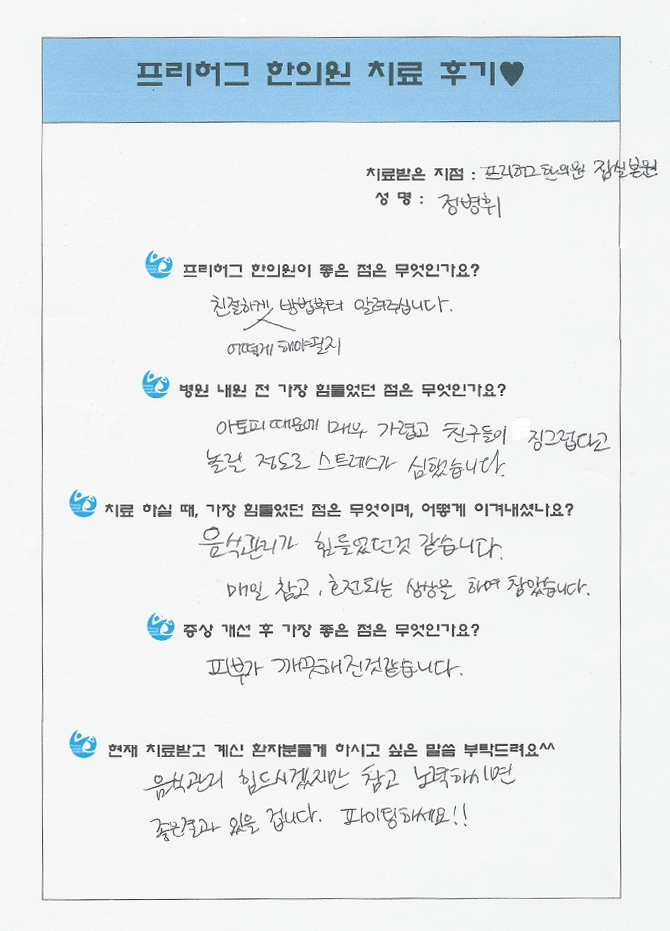 프리허그 한의원 치료 후기♥
치료받은 지점 : 프리허그한의원 잠실본원
성 명 : 정병휘
프리허그 한의원이 좋은 점은 무엇인가요?
친절하게 방법부터 알려주십니다.
어떻게 해야할지
병원 내원 전 가장 힘들었던 점은 무엇인가요?
아토피때문에 매우 가렵고 친구들이 징그럽다고
놀릴 정도로 스트레스가 심했습니다.
치료 하실 때, 가장 힘들었던 점은 무엇이며, 어떻게 이겨내셨나요?
음식관리가 힘들었던것 같습니다.
매일 참고, 호전되는 상상을 하며 참았습니다.
증상 개선 후 가장 좋은 점은 무엇인가요?
피부가 깨끗해진것같습니다.
현재 치료받고 계신 환자분들게 하시고 싶은 말씀 부탁드려요^^
음식관리 힘드시겠지만 참고 노력하시면
좋은결과 있을 겁니다. 파이팅하세요!!